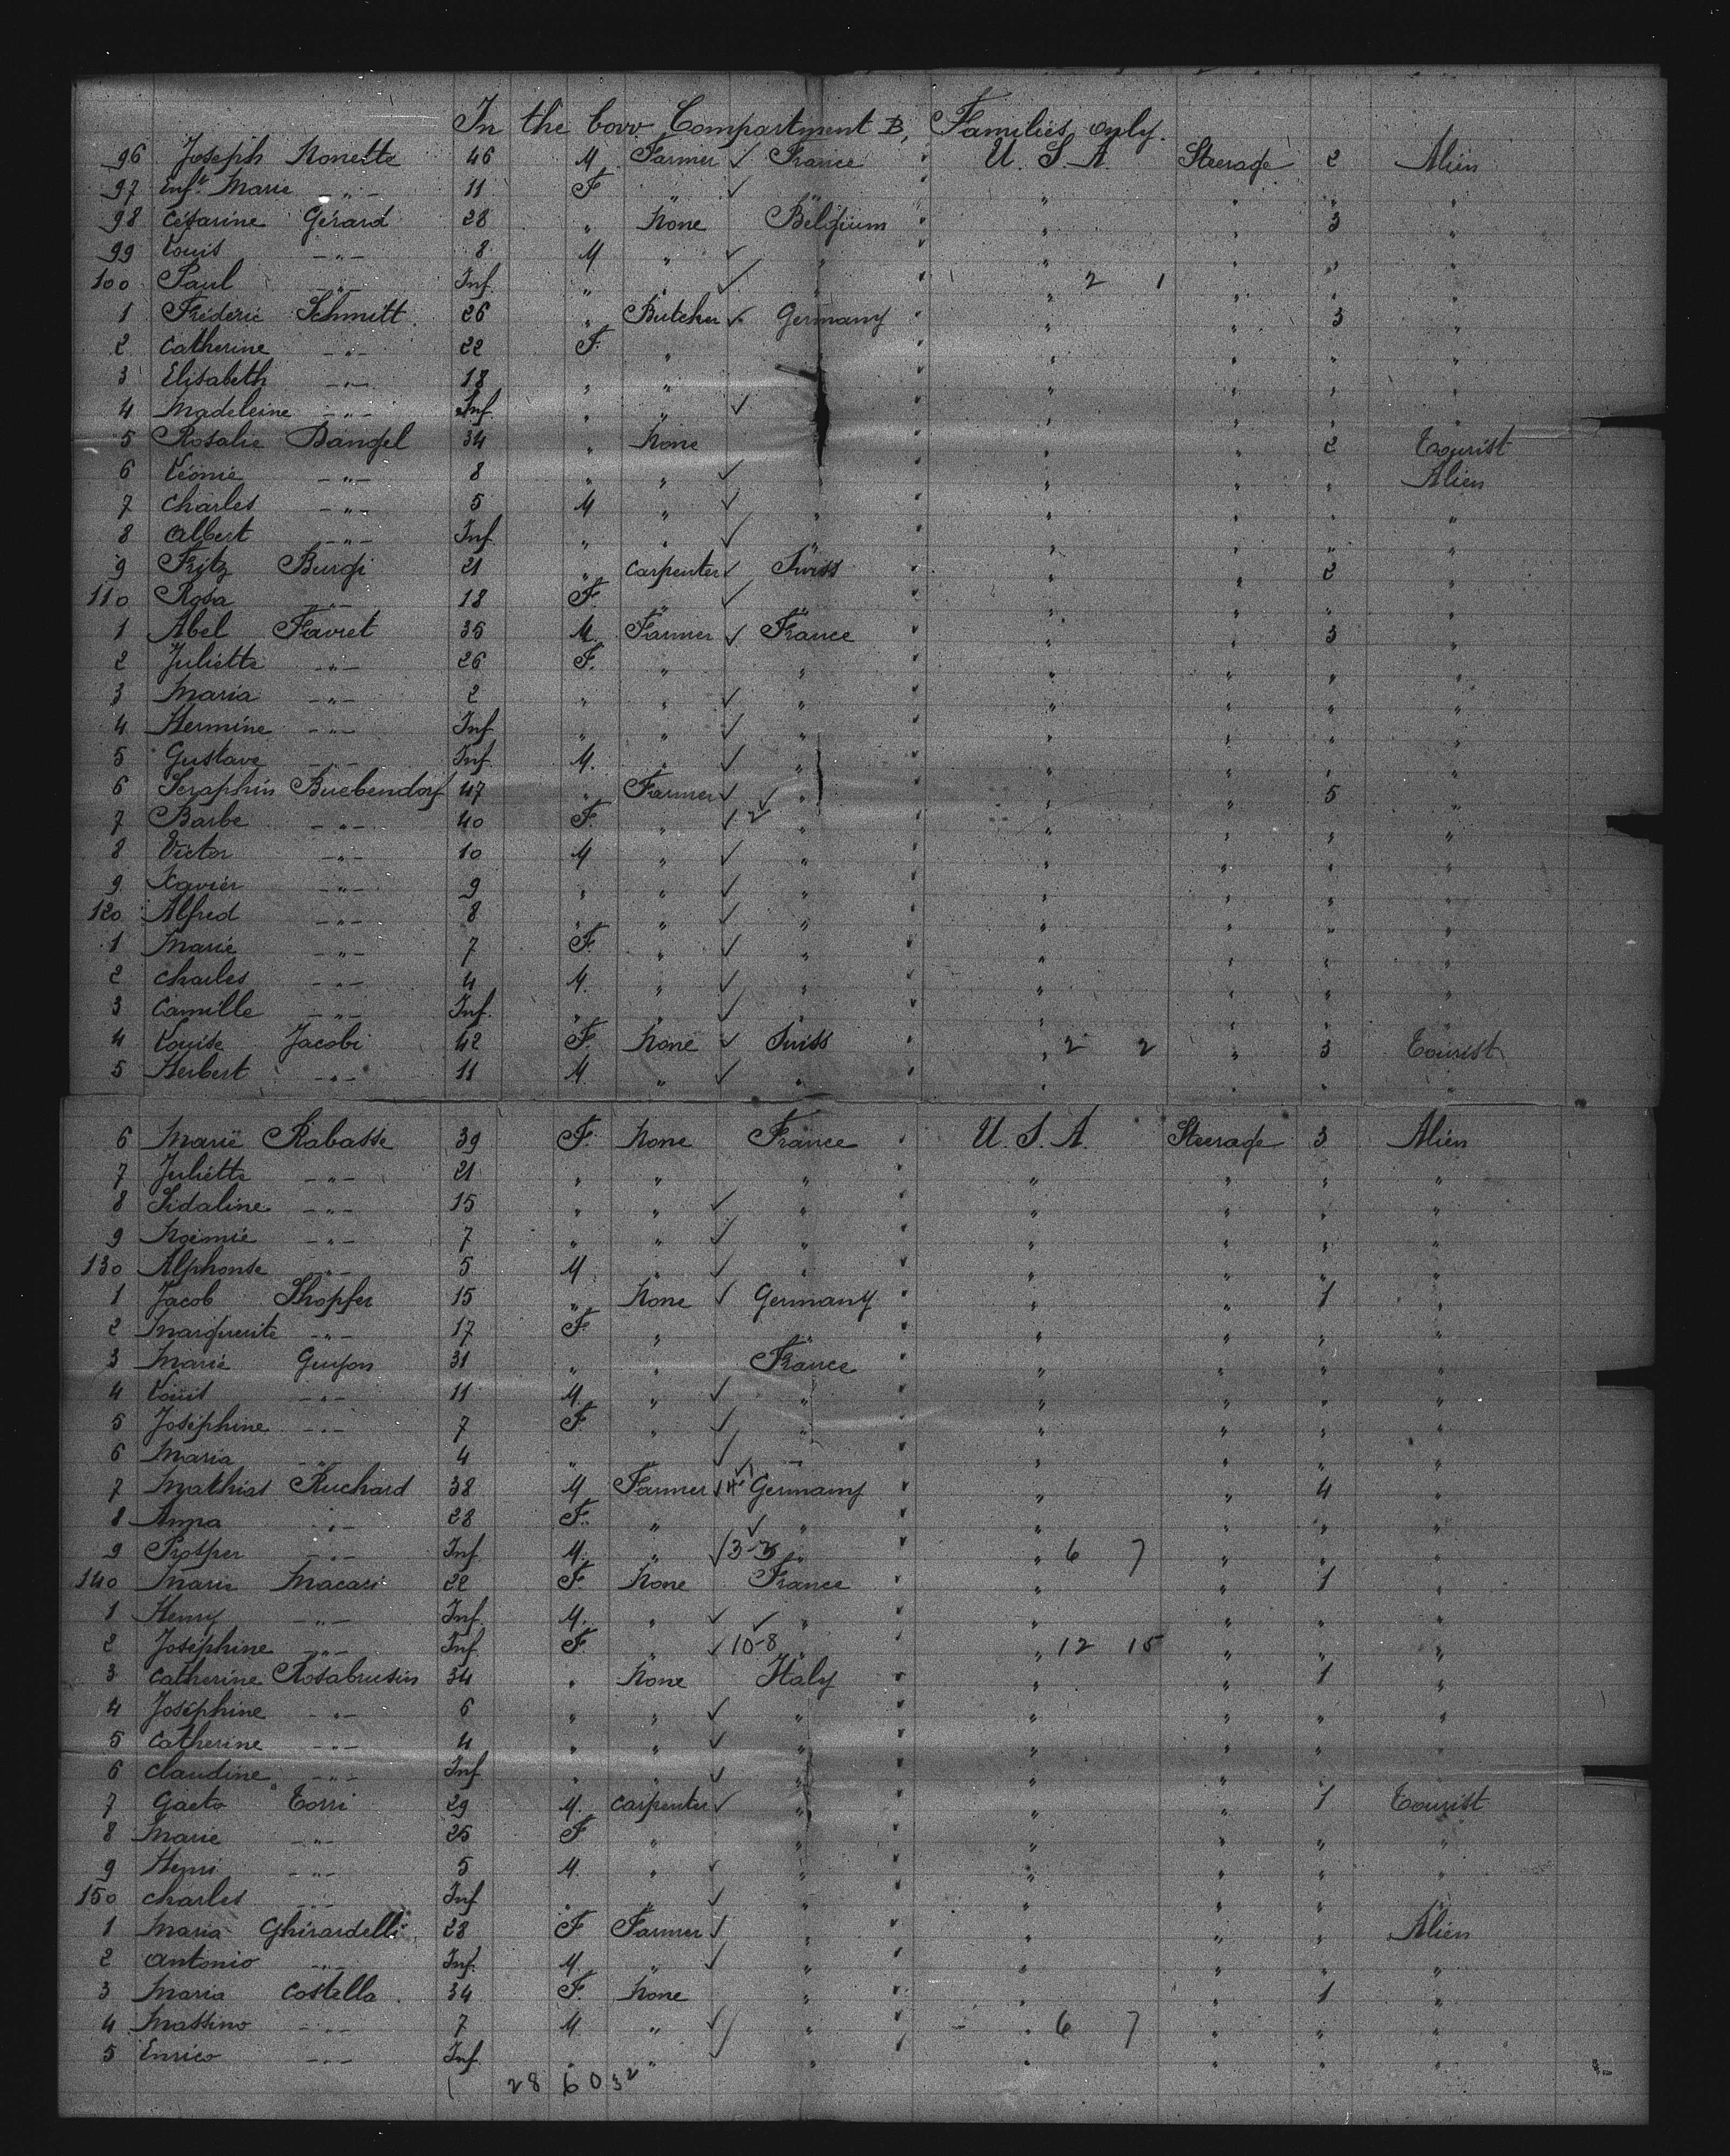 In the bow Compartment B, Families only.
96 Joseph Nonette 46 M Farmer ✓ France " U. S. A. Steerage 2 Alien
97 Enft Marie -"- 11 F " ✓ " " " " " "
98 Césarine Gérard 28 " None Belgium " " " 3 "
99 Louis -"- 8 M " ✓ " " " " " "
100 Paul -"- Inf " " ✓ " " " 2 1 " " "
1 Frédéric Schmitt 26 " Butcher ✓ Germany " " " 3 "
2 Catherine -"- 22 F " " " " " "
3 Elisabeth -"- 18 " " " " " " "
4 Madeleine -"- Inf " " ✓ " " " " "
5 Rosalie Dangel 34 " None " " " 2 Tourist
6 Léonie -"- 8 " " ✓ " " " " Alien
7 Charles -"- 5 M " ✓ " " " " " "
8 Albert -"- Inf " " ✓ " " " " " "
9 Fritz Burgi 21 " Carpenter ✓ Swiss " " " 2 "
110 Rosa -"- 18 F " ✓ " " " " " "
1 Abel Favret 35 M Farmer ✓ France " " " 3 "
2 Juliette -"- 26 F " " " " " " "
3 Maria -"- 2 " " ✓ " " " " " "
4 Hermine -"- Inf " " ✓ " " " " " "
5 Gustave -"- Inf M. " ✓ " " " " " "
6 Seraphin Buebendorf 47 " Farmer ✓ ✓ " " " " 5 "
7 Barbe -"- 40 F " ✓ 2 " " " " " "
8 Victor -"- 10 M " ✓ " " " " " "
9 Xavier -"- 9 " " ✓ " " " " " "
120 Alfred -"- 8 " " ✓ " " " " " "
1 Marie -"- 7 F " ✓ " " " " " "
2 Charles -"- 4 M. " ✓ " " " " " "
3 Camille -"- Inf. " " ✓ " " " " " "
4 Louise Jacobi 42 F. None ✓ Swiss " " 2 2 " 3 Tourist
5 Herbert -"- 11 M. " ✓ " " " " " "
6 Marie Rabasse 39 F. None France " U. S. A. Steerage 3 Alien
7 Juliette -"- 21 " " " " " " " "
8 Sidaline -"- 15 " " ✓ " " " " " "
9 Noémie -"- 7 " " ✓ " " " " " "
130 Alphonse -"- 5 M " ✓ " " " " " "
1 Jacob Shopfer 15 " None ✓ Germany " " " 1 "
2 Marguerite -"- 17 F " " " " " " "
3 Marie Guyon 31 " " France " " " " "
4 Louis -"- 11 M. " ✓ " " " " " "
5 Joséphine -"- 7 F " ✓ " " " " " "
6 Maria -"- 4 " " ✓ " " " " " "
7 Mathias Ruchard 38 M Farmer ✓ Germany " " " 4 "
8 Anna -"- 28 F. " ✓ " " " " " "
9 Prosper -"- Inf M. " ✓ 3-3 " " " 6 7 " " "
140 Marie Macari 22 F. None France " " " 1 "
1 Henry -"- Inf. M. " ✓ ✓ " " " " " "
2 Joséphine -"- Inf F. " ✓ 10-8 " " " 12 15 " " "
3 Catherine Rosabrusin 34 " None Italy " " " 1 "
4 Joséphine -"- 6 " " ✓ " " " " " "
5 Catherine -"- 4 " " ✓ " " " " " "
6 Claudine -"- Inf " " ✓ " " " " " "
7 Gaeto Torri 29 M. Carpenter ✓ " " " " 1 Tourist
8 Marie -"- 25 F " " " " " " "
9 Henri -"- 5 M. " ✓ " " " " " "
150 Charles -"- Inf " " ✓ " " " " " "
1 Maria Ghirardelli 28 F Farmer ✓ " " " " " Alien
2 Antonio -"- Inf. M. " ✓ " " " " " "
3 Maria Costella 34 F. None " " " " 1 "
4 Massino -"- 7 M " ✓ " " " 6 7 " " "
5 Enrico -"- Inf " " ✓ " " " " " "
28 60 32